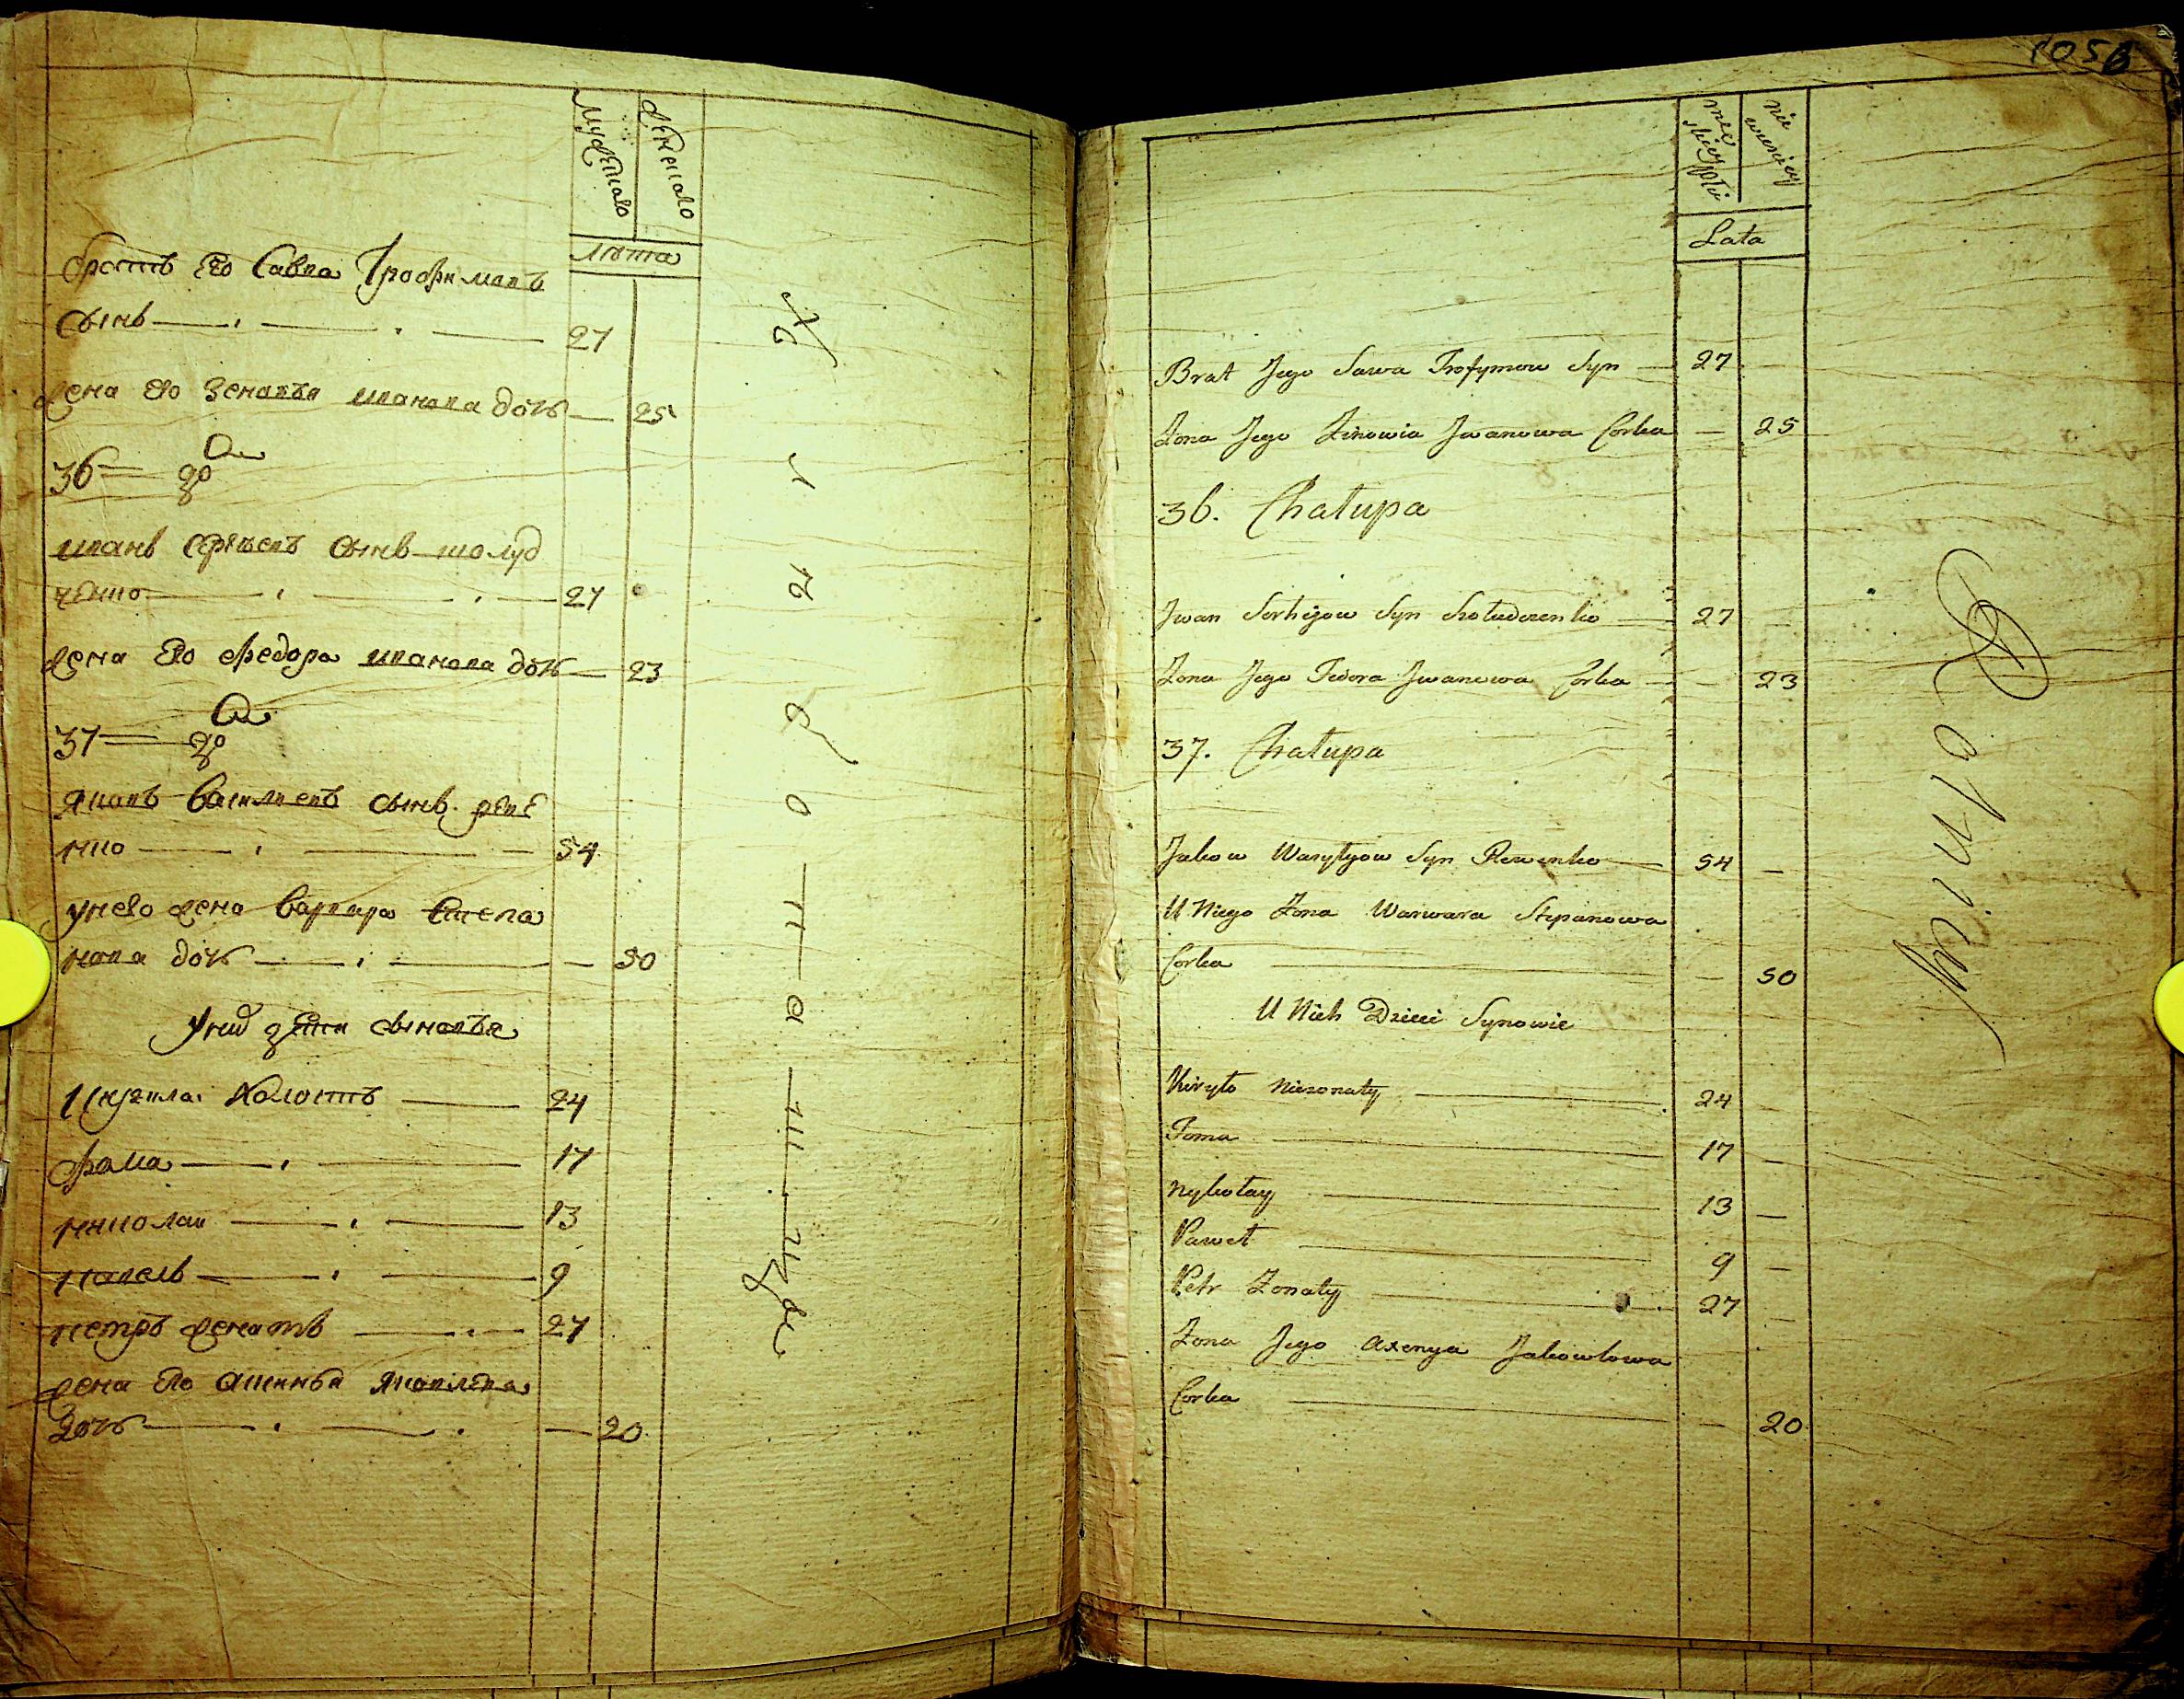 Мужеска
Женска
лѣта
братъ его Савва Трофимовъ
сынъ 27
жена его Зеновѣя иванова дочь 25
36
иванъ сергѣевъ сынъ шолуд
ченко 27
жена его Федора иванова дочь 23
37
яковъ василиевъ сынъ реве
нко 54
у него жена варвара степа
нова дочь 50
у них дети сыновья
Кирила холостъ 24
Фома 17
николаи 13
павелъ 9
петръ женатъ 27
жена его аксинья яковлева
дочь 20
1056
męskiej płci
niewieściej
Lata
Brat Jego Sawa Trofymow Syn 27 —
Żona Jego Zinowia Jwanowa Corka — 25
36. Chałupa
Jwan Serhijow Syn Szołudczenko 27 —
Żona Jego Fedora Jwanowa Corka — 23
37. Chałupa
Jakow Wasylyow Syn Rewenko 54 —
U Niego Żona Warwara Stepanowa
Corka — 50
U Nich Dzieci Synowie
Kiryło nieżonaty 24
Foma 17 —
Nykołay 13 —
Paweł 9 —
Petr Żonaty 27 —
Żona Jego Axenya Jakowlowa
Corka — 20